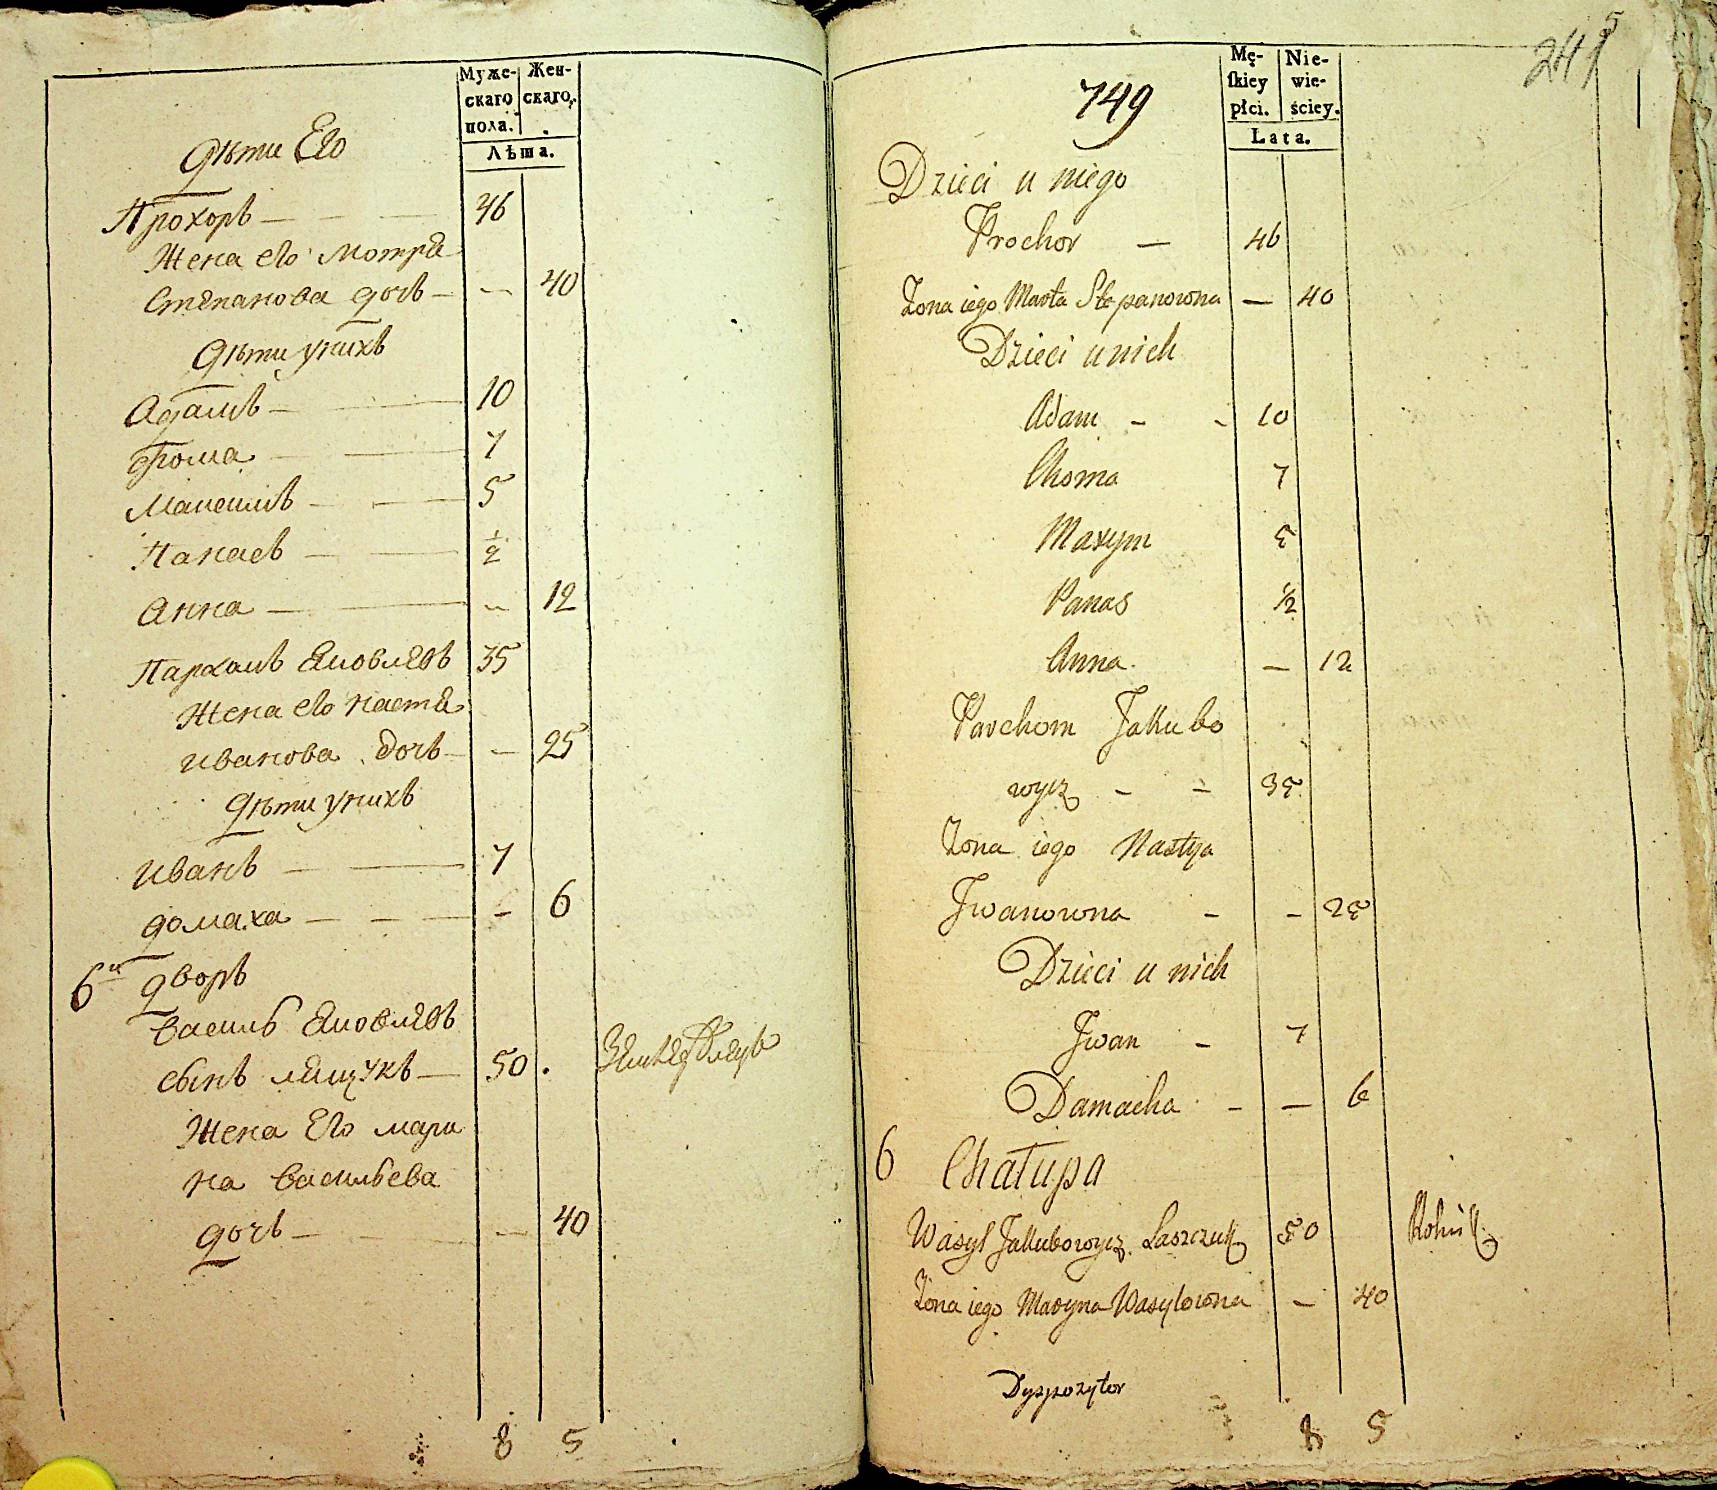 Муже- Жен-
скаго скаго.
пола.
Лѣта.
Дѣти Его
Прохоръ — — — 46
Жена его Мотря
Степанова дочь — — 40
Дѣти уних
Адамъ — — 10
Фома — — 7
Максимъ — — 5
Панасъ — — 1/2
Анна — — — 12
Пархомъ Яковлевъ 35
Жена его Настя
Иванова дочь — — 25
Дѣти унихъ
Иванъ — — 7
Домаха — — — — 6
6й Дворъ
Василь Яковлевъ
сынъ Лящукъ — 50 .
Жена Его Мари
на Васильева
дочь — — — 40
8 5
241
5
749
Mę- Nie-
skiey wie-
płci. ściey.
Lata.
Dzieci u niego
Prochor — 46
Żona iego Marta Stepanowna — 40
Dzieci u nich
Adam - - 10
Choma 7
Maxym 5
Panas 1/2
Anna — 12
Parchom Jakubo
wycz - - 35
Żona iego Nastya
Jwanowna - - 25
Dzieci u nich
Jwan - 7
Damacha - — 6
6 Chałupa
Wasyl Jakubowycz Laszczuk 50 Rolnik
Żona iego Maryna Wasylowna — 40
Dyspozytor
8 5